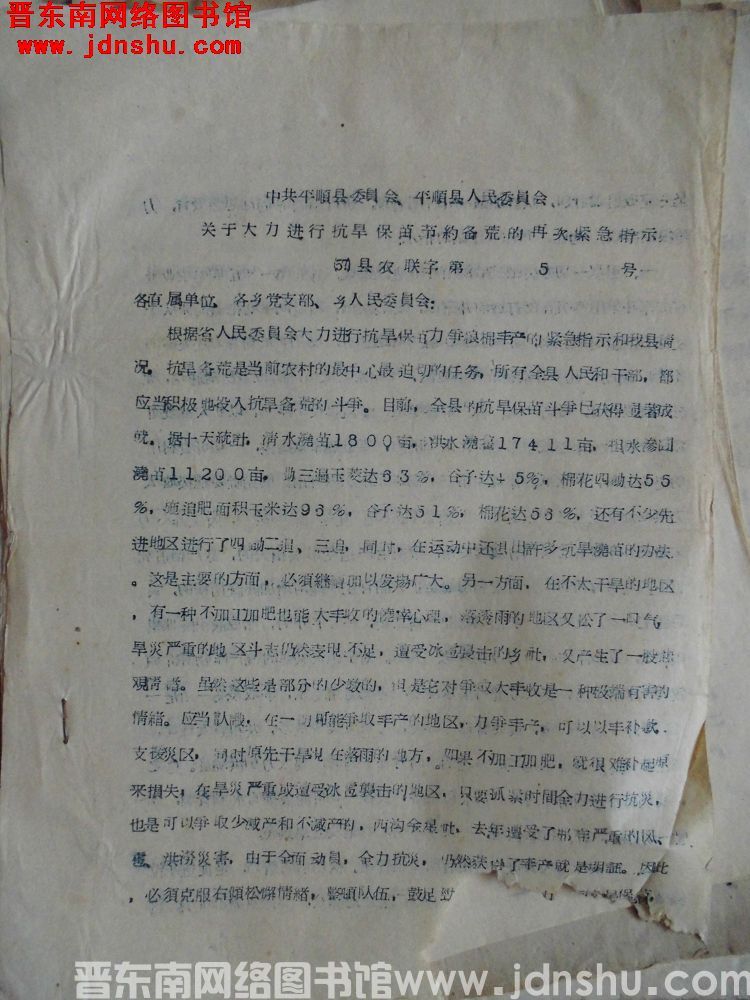 晋东南网络图书馆
www.jdnshu.com
中共平順县委員会、平順县人民委員会、
关于大力进行抗旱保苗节約备荒的再次紧急指示
县农联字第5号
各直属单位、各乡党支部、乡人民委員会:
根据省人民委員会大力进行抗旱保苗力争粮棉丰产的紧急指示和我县情
况。抗旱备荒是当前农村的最中心最迫切的任务,所有全县人民和干部,都
应当积极地投入抗旱备荒的斗争。目前,全县的抗旱保苗斗争已获得显著成
就。据十天統計,清水澆苗1800亩,洪水澆苗17411亩,担水滲回
澆苗11200亩,鋤三遍玉茭达63%,谷子达45%,棉花四鋤达55
%,追肥面积玉米达96%,谷子达51%,棉花达56%,还有不少先
进地区进行了四鋤二追、三追,同时,在运动中还出許多抗旱澆苗的办法
。这是主要的方面,必須継續加以发揚广大。另一方面,在不太干旱的地区
,有一种不加工加肥也能大丰收的僥倖心理,落透雨的地区又松了一口气
旱災严重的地区斗志仍然表現不足,遭受冰雹襲击的乡社,又产生了一般悲
观情緒。虽然这些是部分的少数的,但是它对争取大丰收是一种极端有害的
情緒。应当認識,在一切可能争取丰产的地区,力争丰产,可以以丰补歉、
支援災区,同时原先干旱現在落雨的地方,如果不加工加肥,就很难补起原
来損失,在旱災严重或遭受冰雹襲击的地区,只要抓紧时間全力进行抗災,
也是可以争取少减产和不减产的,西沟金星社,去年遭受了那样严重的风、
雹、洪澇災害,由于全面动員,全力抗災,仍然获得了丰产就是明証。因此
,必須克服右傾松懈情緒,整頓队伍,鼓足
晋东南网络图书馆www.jdnshu.com